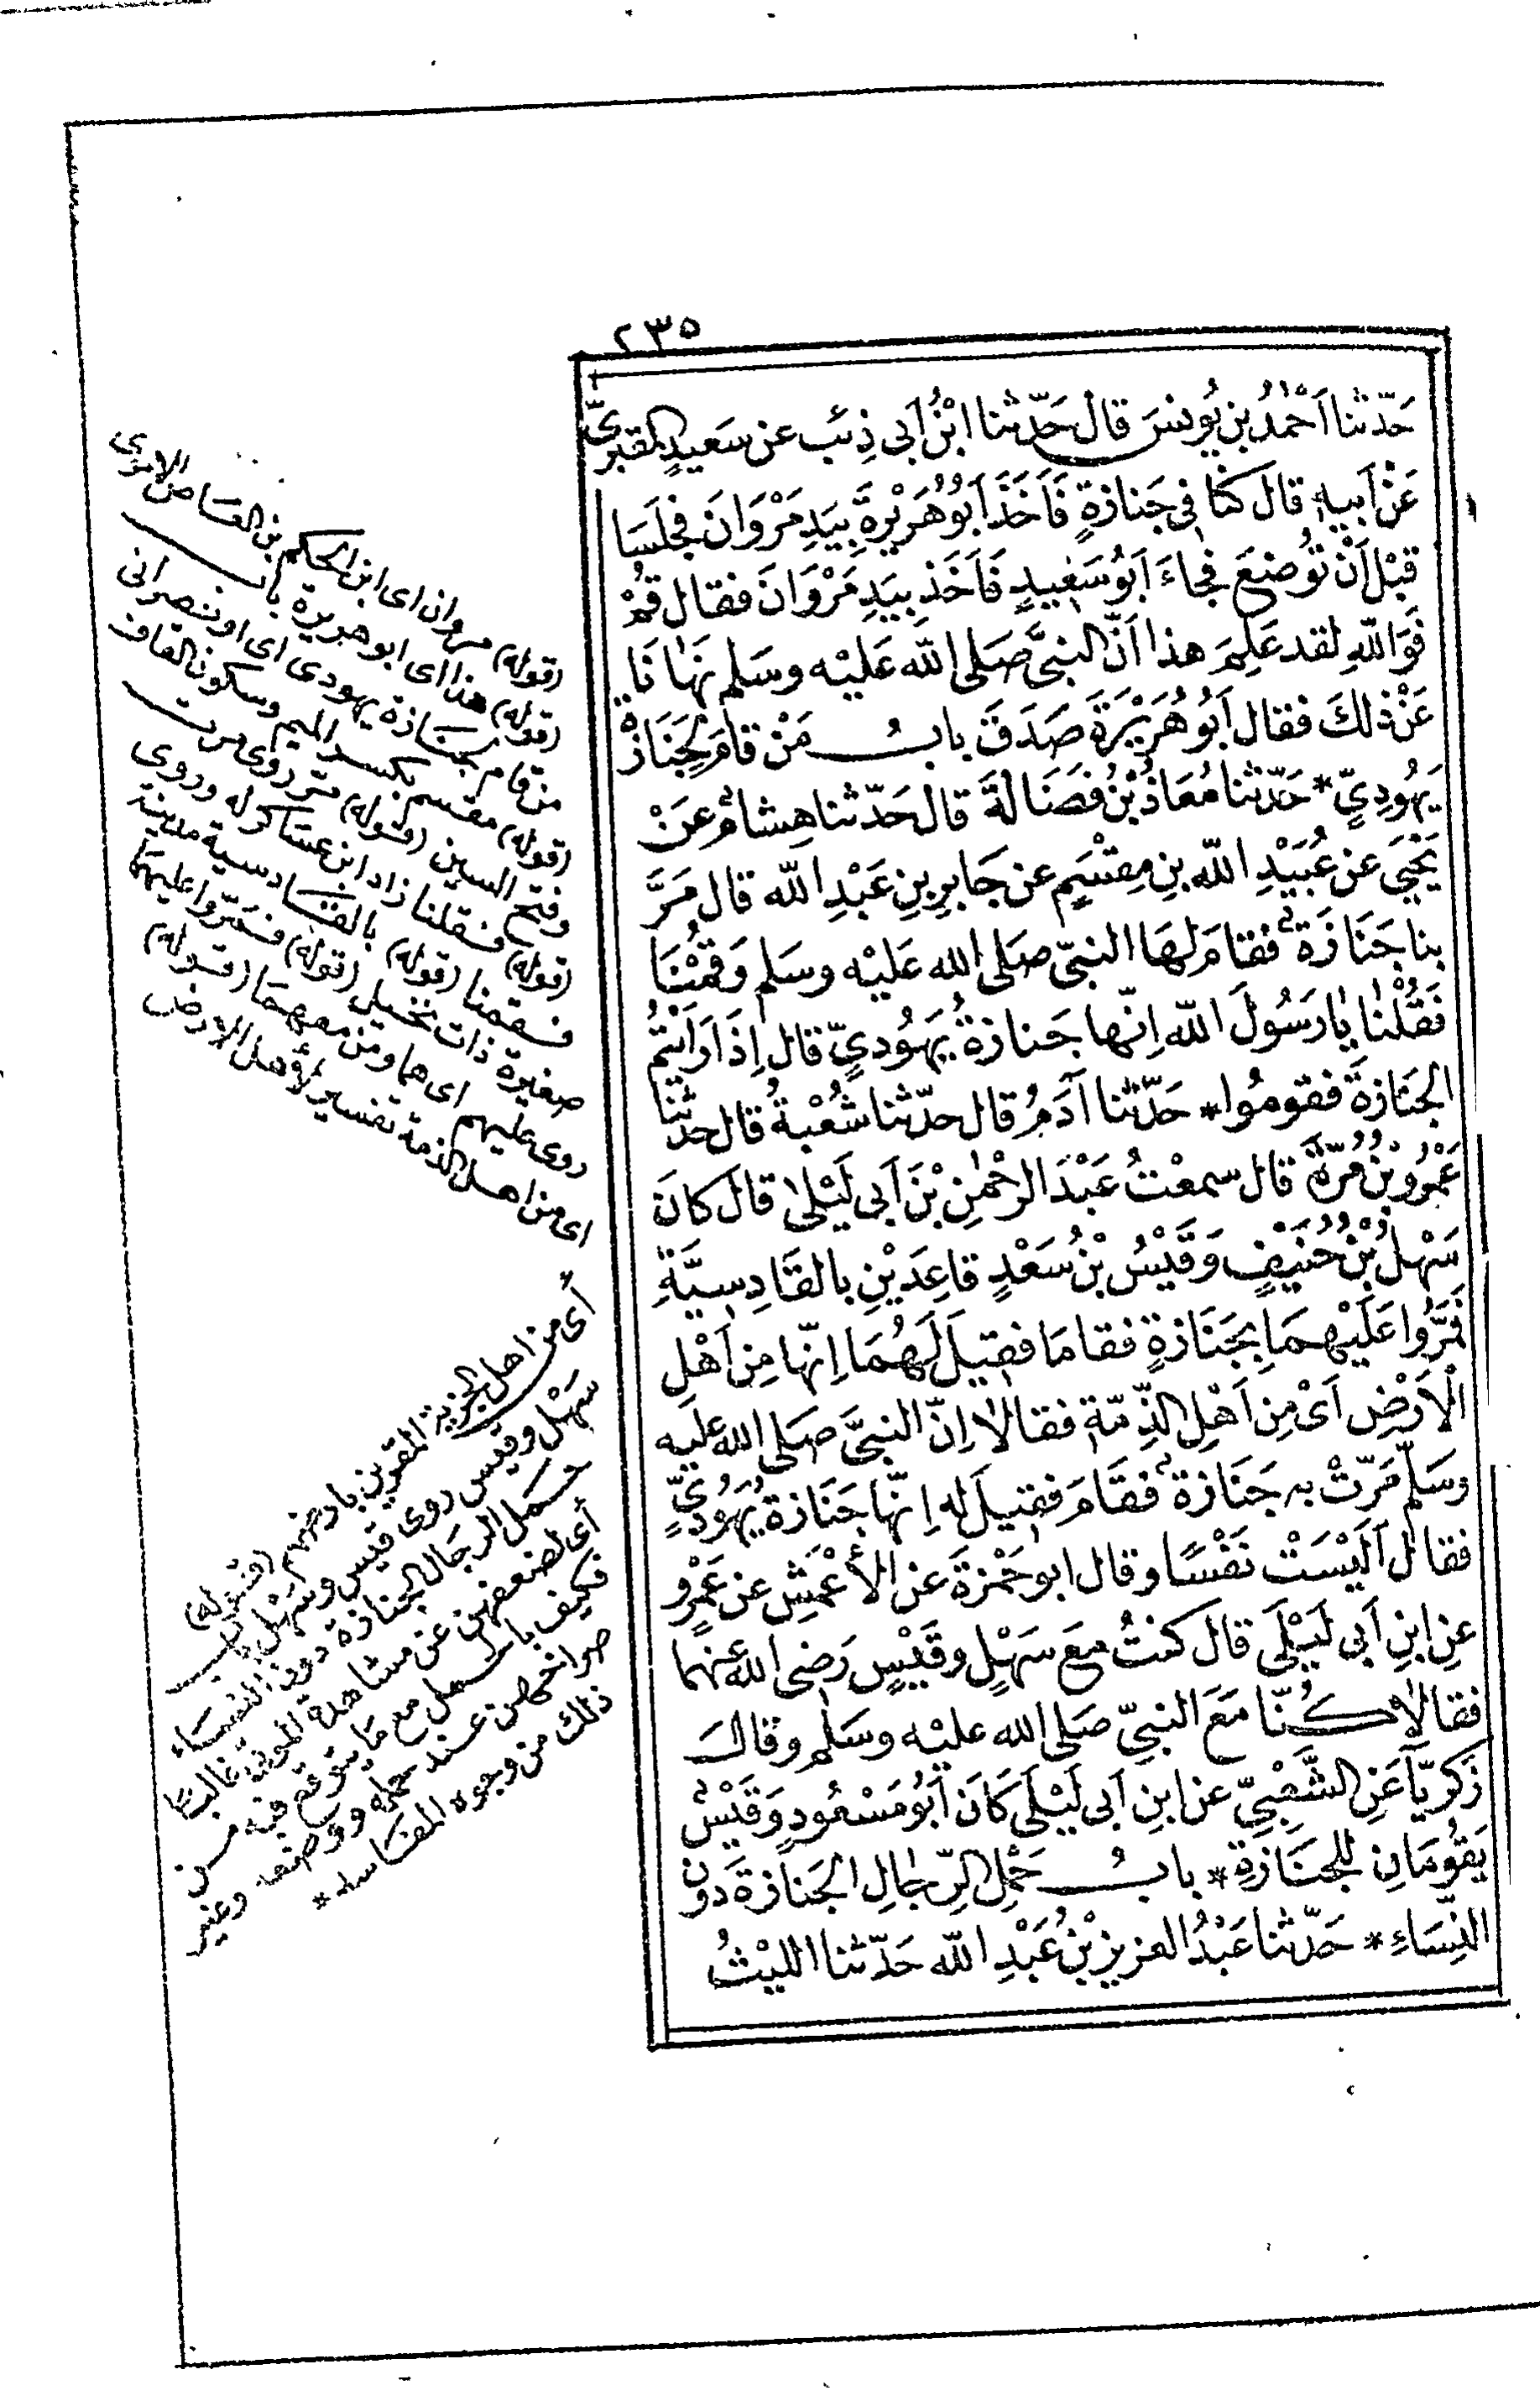 ٢٣٥
حَدّثنا اَحْمَدُ بن يُونسَ قال حَدّثنا ابْنُ اَبى ذِئب عن سَعيدٍ المقبرىّ
عَنْ اَبيهِ قال كنّا فى جَنازةٍ فَاَخَذَ اَبُو هُرَيْرةَ بِيَدِ مَرْوَانَ فجلَسَا
قبْل اَنْ تُوضعَ فجاءَ اَبُو سَعِيدٍ فَاَخَذ بِيَدِ مَرْوَانَ فقال قُمْ
فَوَاللّهِ لقد عَلِمَ هذا اَنّ النبىَّ صَلى الله عَليْه وسَلم نَهَانَا
عَنْ ذلكَ فقال اَبُو هُرَيْرَةَ صَدَقَ بابُ مَنْ قامَ لجَنَازَةْ
يَهُودِىّ * حَدّثنا مُعَاذُ بْنُ فَضَالةَ قال حَدّثنا هِشامٌ عَنْ
يَحْيَى عن عُبَيْدِ اللّه بنِ مِقسَمٍ عن جَابِرِ بنِ عَبْدِ اللّه قال مَرَّ
بنا جَنَازَة فقامَ لهَا النبىّ صَلى الله عَليْه وسَلم وَقُمْنَا
فَقُلْنا يارَسُولَ اللّه اِنّها جَنازةُ يَهُودىٍّ قال اِذَا رَاَيْتُم
الجَنَازةَ فقومُوا * حَدّثنا آدَمُ قال حدّثنا شُعْبةُ قال حَدّثنا
عَمْرُو بْنُ مُرّةَ قال سمعْتُ عَبْدَ الرحْمٰنِ بْنَ اَبى لَيْلى قال كانَ
سَهْلُ بْنُ حُنَيْفٍ وَقَيْسُ بْنُ سَعْدٍ قاعِدَيْنِ بالقَادِسيَّةِ
فَمَرُّوا عَلَيْهِمَا بِجَنَازةٍ فقامَا فقيلَ لَهُمَا اِنّها مِن اَهْلِ
الْاَرْضِ اَىْ مِن اَهْلِ الذِّمّةِ فقالَا اِنّ النبىَّ صَلى الله عليه
وسَلم مَرّتْ به جَنَازة فقَامَ فقيلَ له اِنّها جَنَازة يَهُودىٍّ
فقال اَلَيْسَتْ نَفْسًا وقال ابو حَمْزةَ عن الأَعْمَشِ عن عَمْرٍو
عنِ ابنِ اَبى لَيْلَى قال كنتُ مَعَ سَهْلٍ وقَيْسٍ رَضى الله عنهما
فقالَا كُنّا مَعَ النبىّ صَلى الله عليْه وسَلم وقالَ
زَكريّا عَنِ الشَّعْبِىّ عن ابنِ اَبى لَيْلَى كَانَ اَبُو مَسْعُودٍ وَقَيْسٌ
يَقُومَانِ للجنَازةِ * بابُ حَمْلِ الرِّجالِ الجَنازةَ دون
النِّسَاءِ * حَدّثنا عَبْدُ العزيزِ بْنُ عَبْدِ اللّه حَدّثنا الليْثُ
(قوله) مروان اى ابن الحكم بن العاص الاموى
(قوله) هذا اى ابو هريرة باب
من قام بجنازة يهودى اى او نصرانى
(قوله) مقسم بكسر الميم وسكون القاف
وفتح السين (قوله) مرّ روى مرت
(قوله) فقلنا زاد ابن عساكر له وروى
فقمنا (قوله) بالقادسية مدينة
صغيرة ذات نخيل (قوله) فمرّوا عليهما
روى عليهم اى هما ومن معهما (قوله)
اى من اهل الذمة تفسير لأهل الارض
أى من اهل الجزية المقرين بارضهم (قوله)
سَهْل وقيس روى قيس وسهل باب
حمل الرجال الجنازة دون النساء
أى لضعفهن عن مشاهدة الموتى غالبًا
فكيف بالحمل مع ما يتوقع فيه من
صراخهن عند حمله ووضعه وغير
ذلك من وجوه المفاسد *